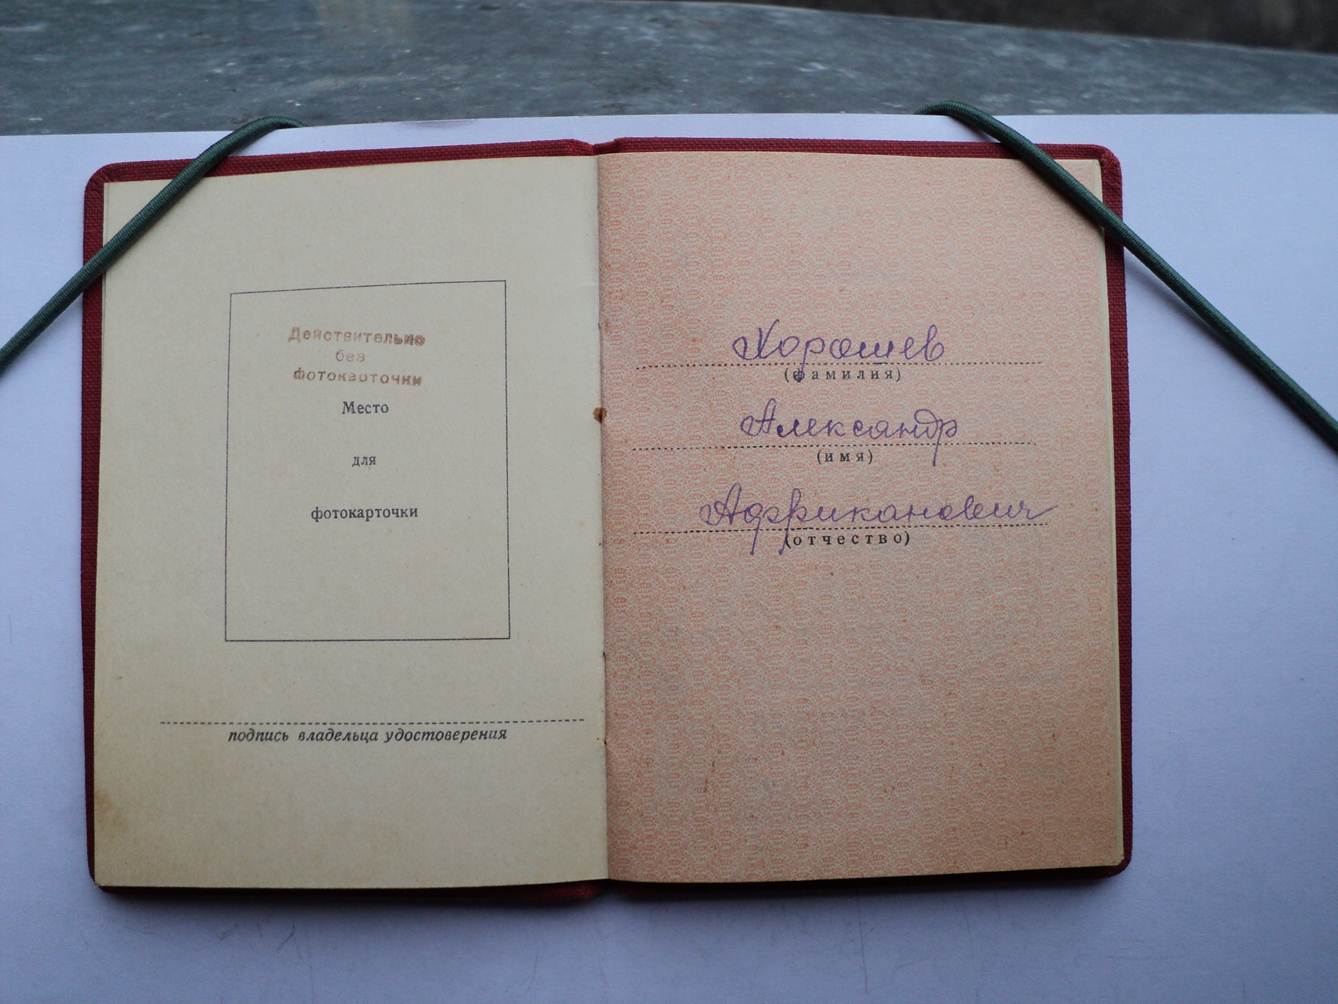 Действительно
без
фотокарточки
Место
для
фотокарточки
подпись владельца удостоверения
Хорошев
(фамилия)
Александр
(имя)
Африканович
(отчество)